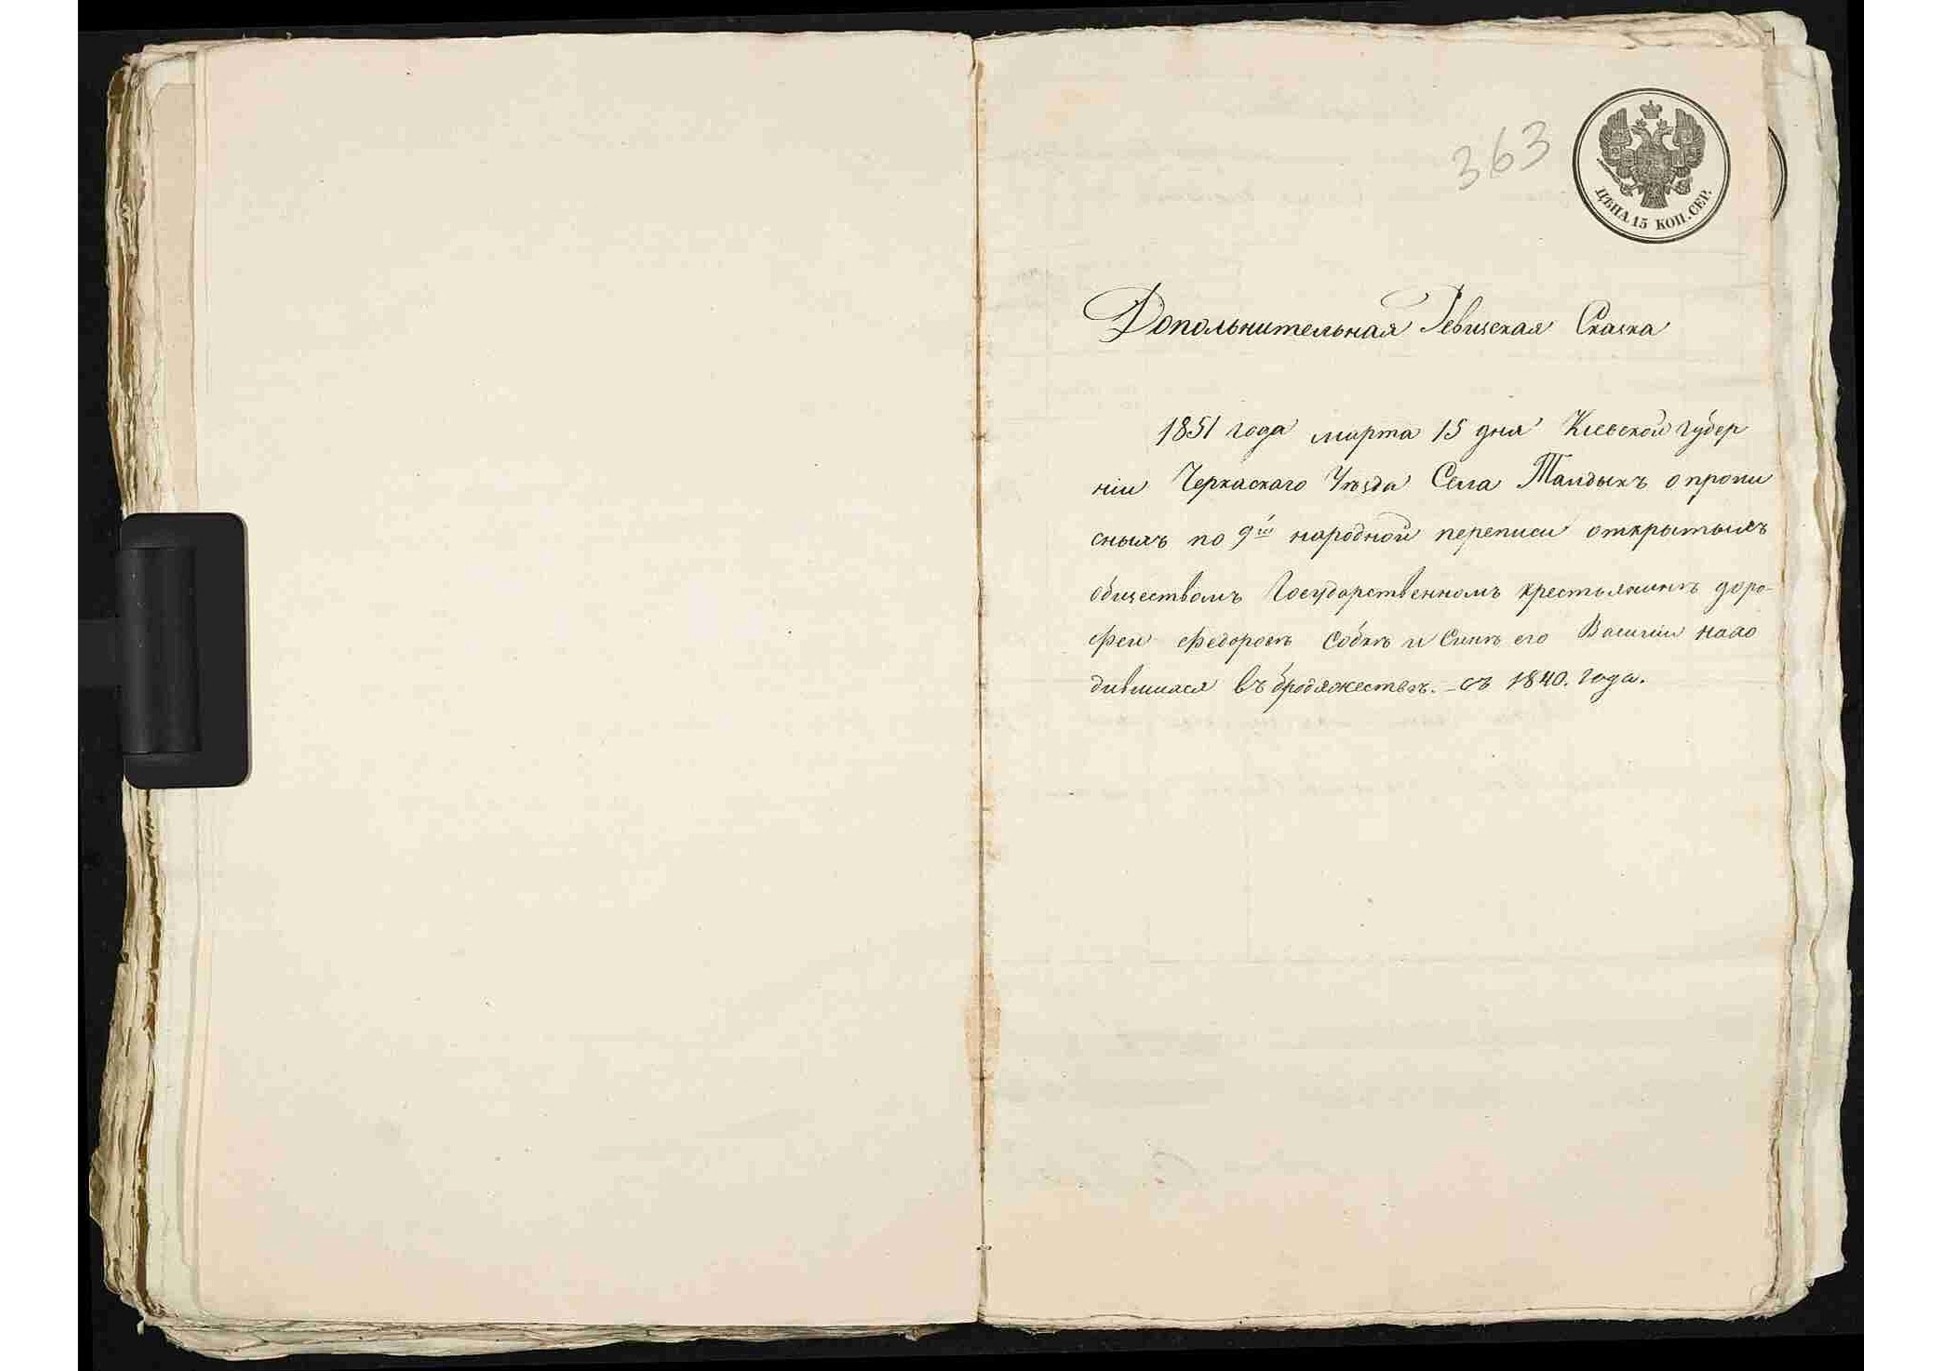 363
ЦѢНА 15 КОП. СЕР.
Допольнительная Ревизская Сказка
1851 года марта 15 дня Кіевской губер
ніи Черкаскаго Уѣзда Села Талдыкъ о пропи
сныхъ по 9ій народной переписи открытымъ
обществомъ Государственномъ крестьянинѣ доро-
феи Федоровѣ Собкѣ и Синѣ его Василіи нахо
дившихся въ бродяжествѣ. съ 1840. года.